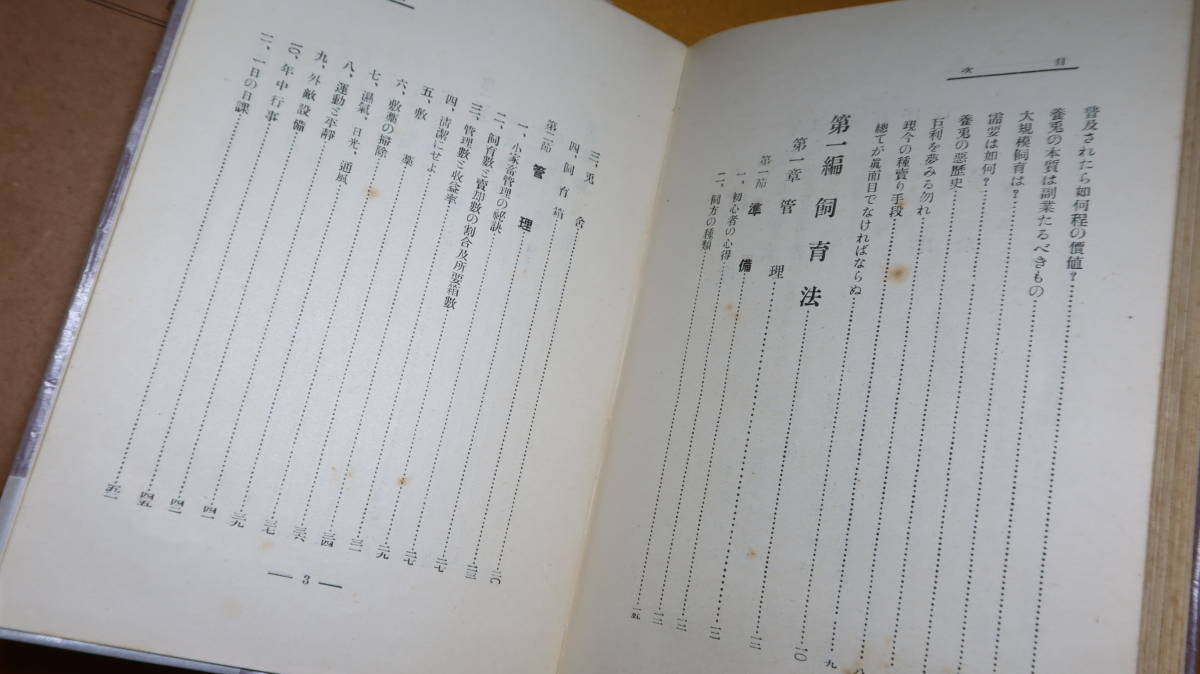 目次
普及されたら如何程の價値?
養兎の本質は副業たるべきもの
大規模飼育は?
需要は如何?
養兎の惡歴史
巨利を夢みる勿れ
現今の種賣り手段 八
總てが眞面目でなければならぬ 九
第一編 飼育法
第一章 管理 一〇
第一節 準備 一二
一、初心者の心得 一二
二、飼方の種類
三、兎舍
四、飼育箱 二〇
第二節 管理 二三
一、小家畜管理の秘訣 二七
二、飼育數と管却數の割合及所要箱數 二七
三、管理數と收益率 二九
四、淸潔にせよ 三一
五、敷藁 三四
六、敷藁の掃除 三六
七、濕氣、日光、通風 三七
八、運動と平靜 三九
九、外敵設備 四一
一〇、年中行事 四二
一一、一日の日課 四五
五一
— 3 —